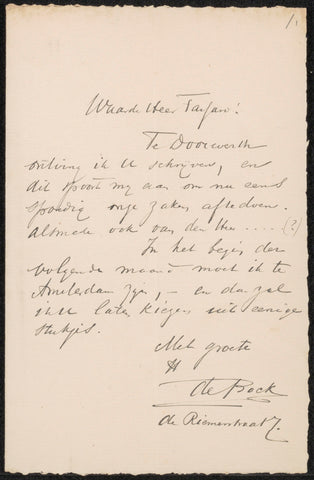 1.
Waarde Heer Tarjan!
Te Doorwerth
ontving ik U schrijven, en
dit spoort mij aan om nu eens
spoedig onze zaken aftedoen.
alsmede ook van den Heer .... (?)
In het begin der
volgende maand moet ik te
Amsterdam zijn, – en dan zal
ik u laten kiezen uit eenige
stukjes.
Met groete
H
de Bock
de Riemerstraat 7.